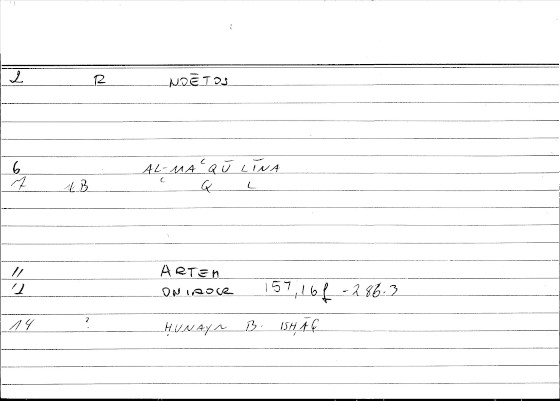 1 R NOĒTOS
6 AL-MAʿQŪLĪNA
7 1.B ʿ Q L
11 ARTEM
12 ONIROCR 157,16f - 286.3
14 ? ḤUNAYN B. ISḤĀQ